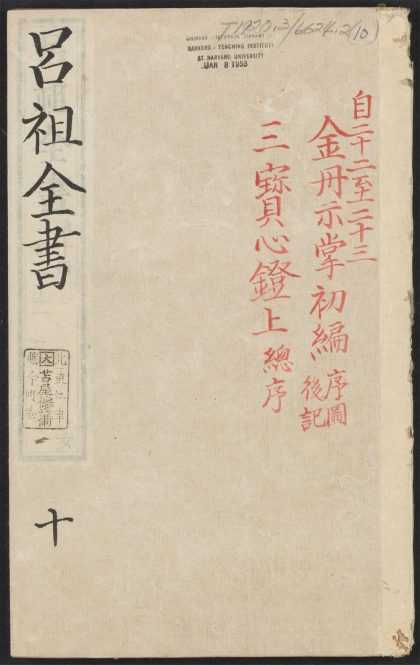 T1920.3/6624.2(10)
CHINESE - JAPANESE LIBRARY
HARVARD - YENCHING INSTITUTE
AT HARVARD UNIVERSITY
JAN 8 1953
自二十二至二十三
金丹示掌初編 序圖 後記
三寳心鐙上 總序
呂祖全書
十